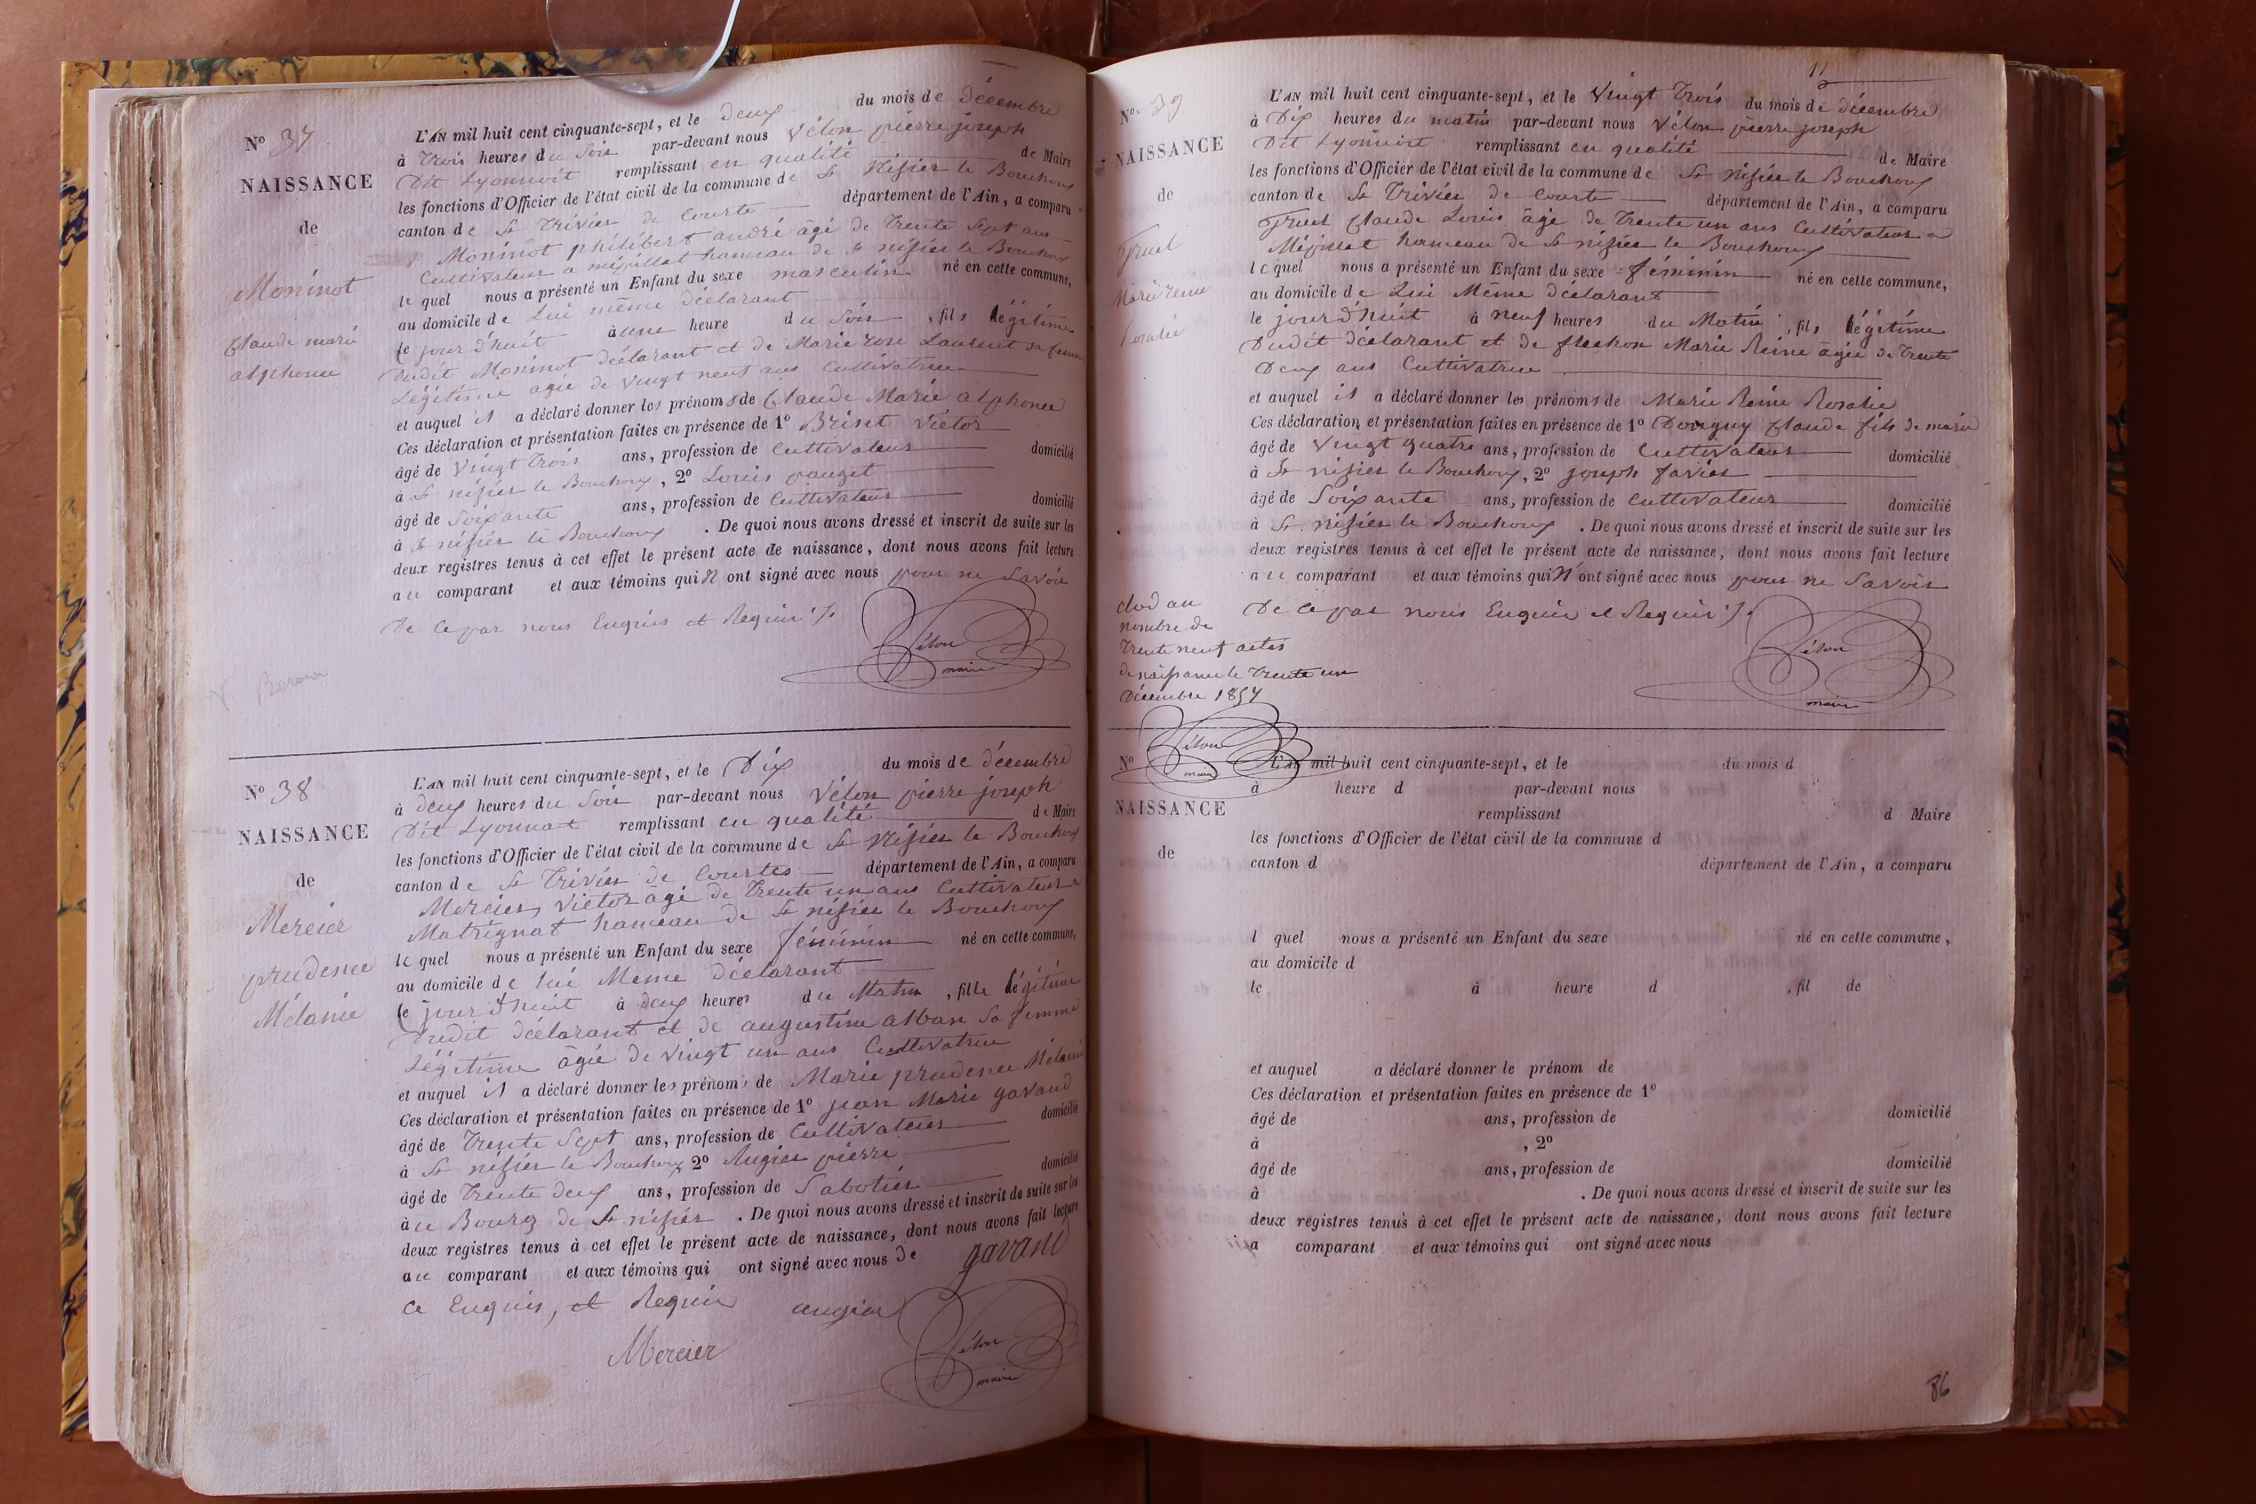 No 37
NAISSANCE
de
Moninot
Claude marie
alphonse
L'AN mil huit cent cinquante-sept, et le Deux du mois de décembre
à Trois heures du Soir par-devant nous Vélon pierre joseph
Dit Lyonnoit remplissant en qualité de Maire
les fonctions d'Officier de l'état civil de la commune de St Nisier le Bouchoux
canton de St Trivier de Courte département de l'Ain, a comparu
Moninot philibert andré âgé de Trente Sept ans
Cultivateur a mépillat hameau de St nisier le Bouchoux
lequel nous a présenté un Enfant du sexe masculin né en cette commune,
au domicile de Lui même déclarant
le jour d'huit à une heure du Soir, fils légitime
Dudit Moninot déclarant et de Marie rose Laurent sa femme
Légitime agée de vingt neuf ans Cultivatrice
et auquel il a déclaré donner les prénoms de Claude Marie alphonse
Ces déclaration et présentation faites en présence de 1o Brint Victor
âgé de Vingt trois ans, profession de Cultivateur domicilié
à St nisier le Bouchoux, 2o Louis pauget
âgé de Soixante ans, profession de Cultivateur domicilié
à St nisier le Bouchoux. De quoi nous avons dressé et inscrit de suite sur les
deux registres tenus à cet effet le présent acte de naissance, dont nous avons fait lecture
au comparant et aux témoins qui N ont signé avec nous pour ne Savoir
De ce par nous Enquis et Requis ./.
Vélon
maire
No 38
NAISSANCE
de
Mercier
prudence
Mélanie
L'AN mil huit cent cinquante-sept, et le Dix du mois de décembre
à deux heures du Soir par-devant nous Vélon pierre joseph
Dit Lyonnat remplissant en qualité de Maire
les fonctions d'Officier de l'état civil de la commune de St Nisier le Bouchoux
canton de St Trivier de Courtes département de l'Ain, a comparu
Mercier, Victor âgé de Trente un ans Cultivateur a
Matrignat hameau de St nisier le Bouchoux
lequel nous a présenté un Enfant du sexe féminin né en cette commune,
au domicile de lui Meme déclarant
le jour d'huit à deux heures du Matin, fille légitime
Dudit déclarant et de augustine alban Sa femme
Légitime âgée de vingt un ans Cultivatrice
et auquel il a déclaré donner les prénoms de Marie prudence Mélanie
Ces déclaration et présentation faites en présence de 1o jean Marie gavand
âgé de Trente Sept ans, profession de Cultivateur domicilié
à St nisier le Bouchoux 2o Augier pierre
âgé de Trente deux ans, profession de Sabotier domicilié
au Bourg de St nisier. De quoi nous avons dressé et inscrit de suite sur les
deux registres tenus à cet effet le présent acte de naissance, dont nous avons fait lecture
au comparant et aux témoins qui ont signé avec nous De
ce Enquis, et Requis
gavand
augier
Mercier
Vélon
maire
11
No 39
NAISSANCE
de
Pruel
Marie reine
Rosalie
L'AN mil huit cent cinquante-sept, et le Vingt Trois du mois de décembre
à Dix heures du matin par-devant nous Vélon pierre joseph
Dit Lyonnoit remplissant en qualité de Maire
les fonctions d'Officier de l'état civil de la commune de St nisier le Bouchoux
canton de St Trivier de Courte département de l'Ain, a comparu
Pruel Claude Louis âgé de Trente un ans Cultivateur a
Mépillat hameau de St nisier le Bouchoux
lequel nous a présenté un Enfant du sexe féminin né en cette commune,
au domicile de Lui Même déclarant
le jour d'huit à neuf heures du Matin, fils légitime
Dudit déclarant et de flechon Marie Reine âgée de Trente
Deux ans Cultivatrice
et auquel il a déclaré donner les prénoms de Marie Reine Rosalie
Ces déclaration et présentation faites en présence de 1o Donguy Claude fils de marie
âgé de Vingt quatre ans, profession de Cultivateur domicilié
à St nisier le Bouchoux, 2o joseph favier
âgé de Soixante ans, profession de Cultivateur domicilié
à St nisier le Bouchoux. De quoi nous avons dressé et inscrit de suite sur les
deux registres tenus à cet effet le présent acte de naissance, dont nous avons fait lecture
au comparant et aux témoins qui N'ont signé avec nous pour ne Savoir
De ce par nous Enquis et Requis ./.
Vélon
maire
clod au
nombre de
Trente neuf actes
de naissance le Trente un
Décembre 1857
Vélon
maire
No
NAISSANCE
de
L'AN mil huit cent cinquante-sept, et le du mois d
à heure d par-devant nous
remplissant d Maire
les fonctions d'Officier de l'état civil de la commune d
canton d département de l'Ain, a comparu
l quel nous a présenté un Enfant du sexe né en cette commune,
au domicile d
le à heure d , fil de
et auquel a déclaré donner le prénom de
Ces déclaration et présentation faites en présence de 1o
âgé de ans, profession de domicilié
à , 2o
âgé de ans, profession de domicilié
à . De quoi nous avons dressé et inscrit de suite sur les
deux registres tenus à cet effet le présent acte de naissance, dont nous avons fait lecture
a comparant et aux témoins qui ont signé avec nous
86